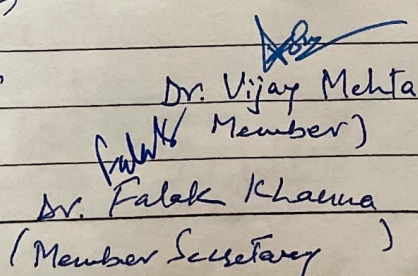 Dr. Vijay Mehta
Member)
Falak
Dr. Falak Khanna
(Member Secretary)